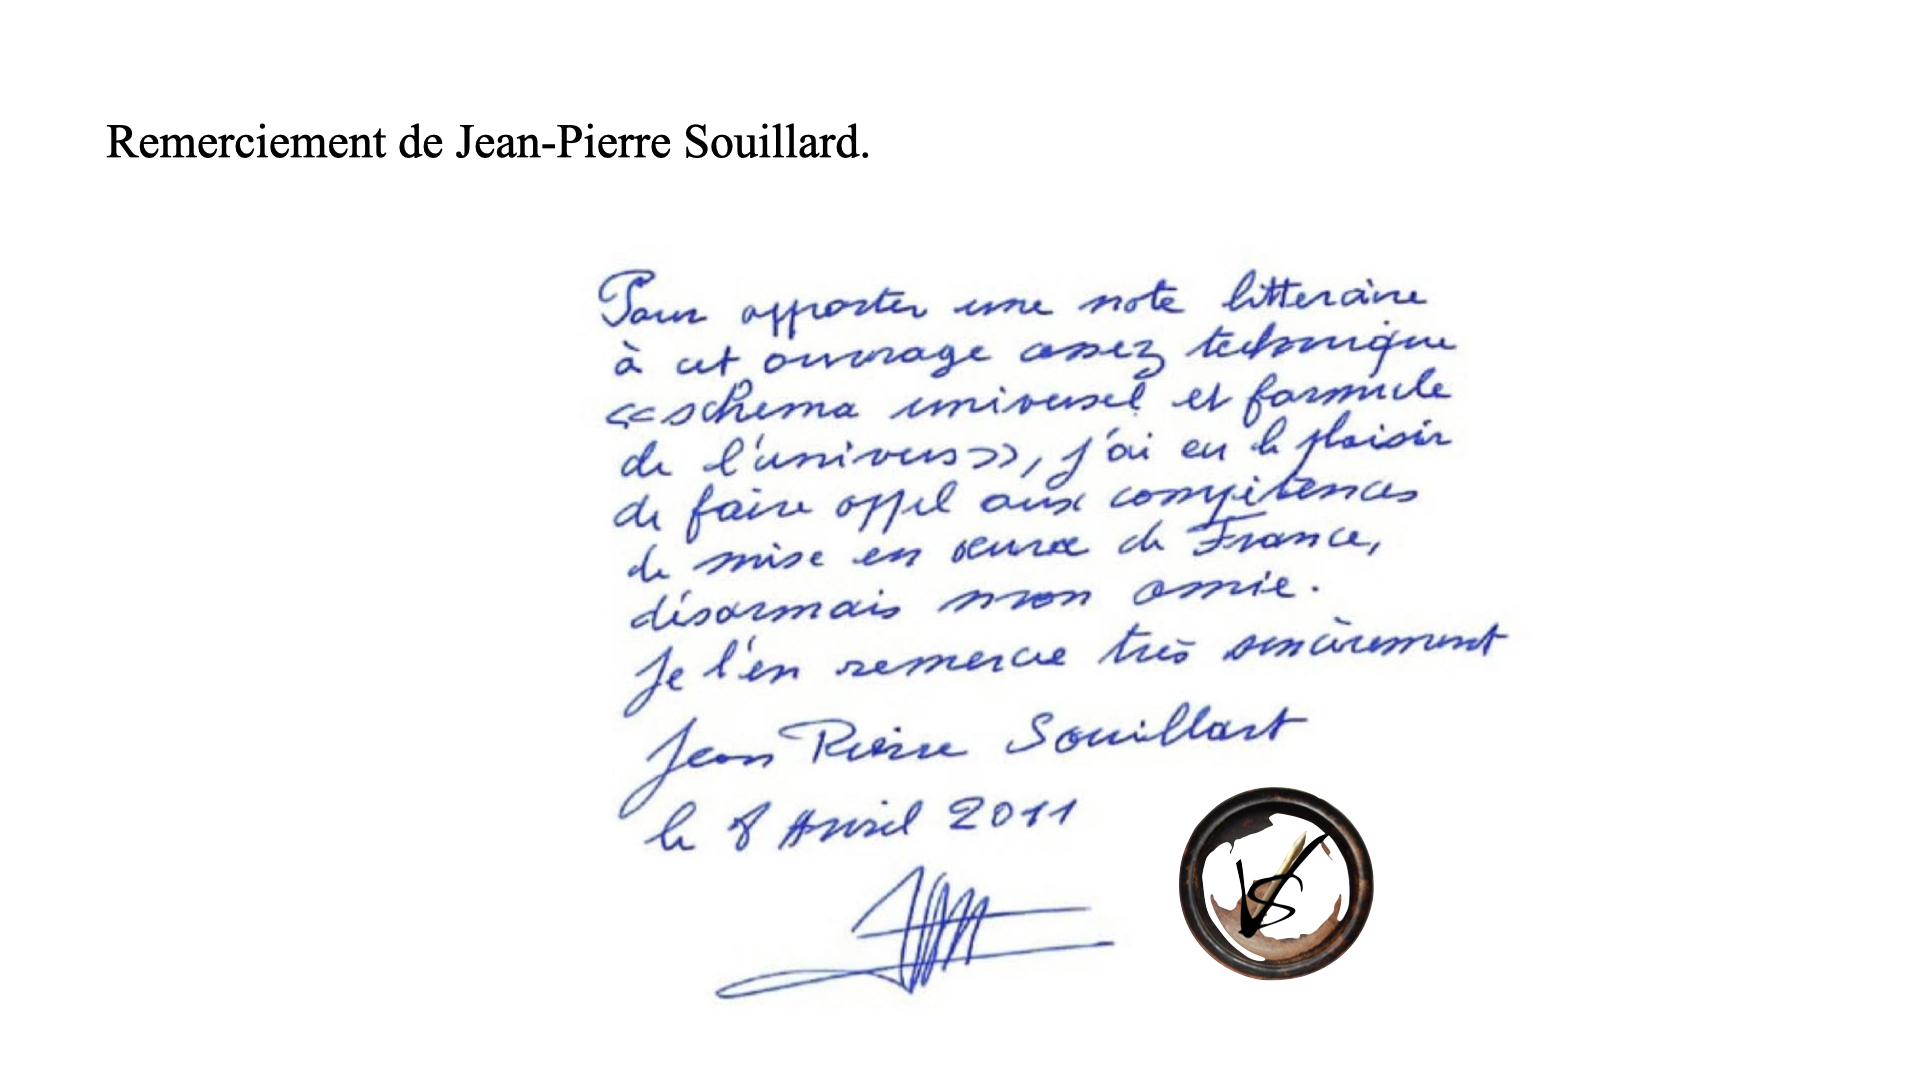 Remerciement de Jean-Pierre Souillard.
Pour apporter une note litteraire
à cet ouvrage assez technique
<<schema universel et formule
de l'univers>>, j'ai eu le plaisir
de faire appel aux compétences
de mise en œuvre de France,
désormais mon amie.
Je l'en remercie très sincèrement
Jean Pierre Souillart
le 8 Avril 2011
VS